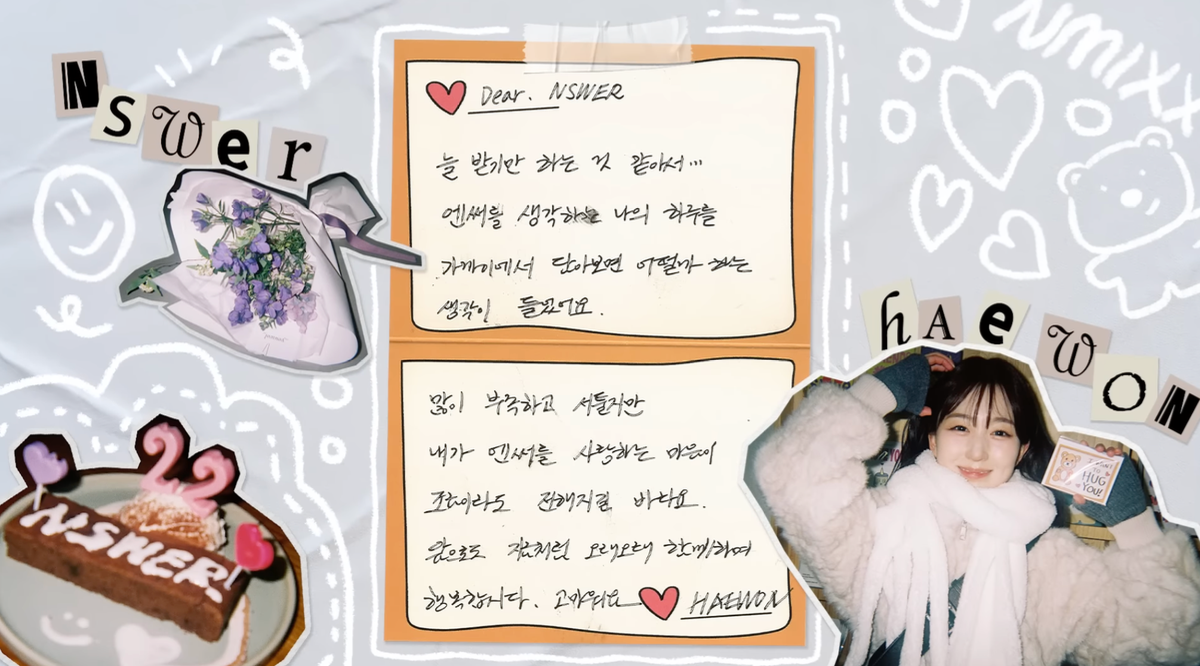 NSWER
NMIXX
Dear. NSWER
늘 받기만 하는 것 같아서...
엔써를 생각하는 나의 하루를
가까이에서 담아보면 어떨까 하는
생각이 들었어요.
많이 부족하고 서툴지만
내가 엔써를 사랑하는 마음이
조금이라도 전해지길 바라요.
앞으로도 지금처럼 오래오래 함께하며
행복합시다. 고마워요
HAEWON
hAeWON
HUG
YOU!
22
NSWER!